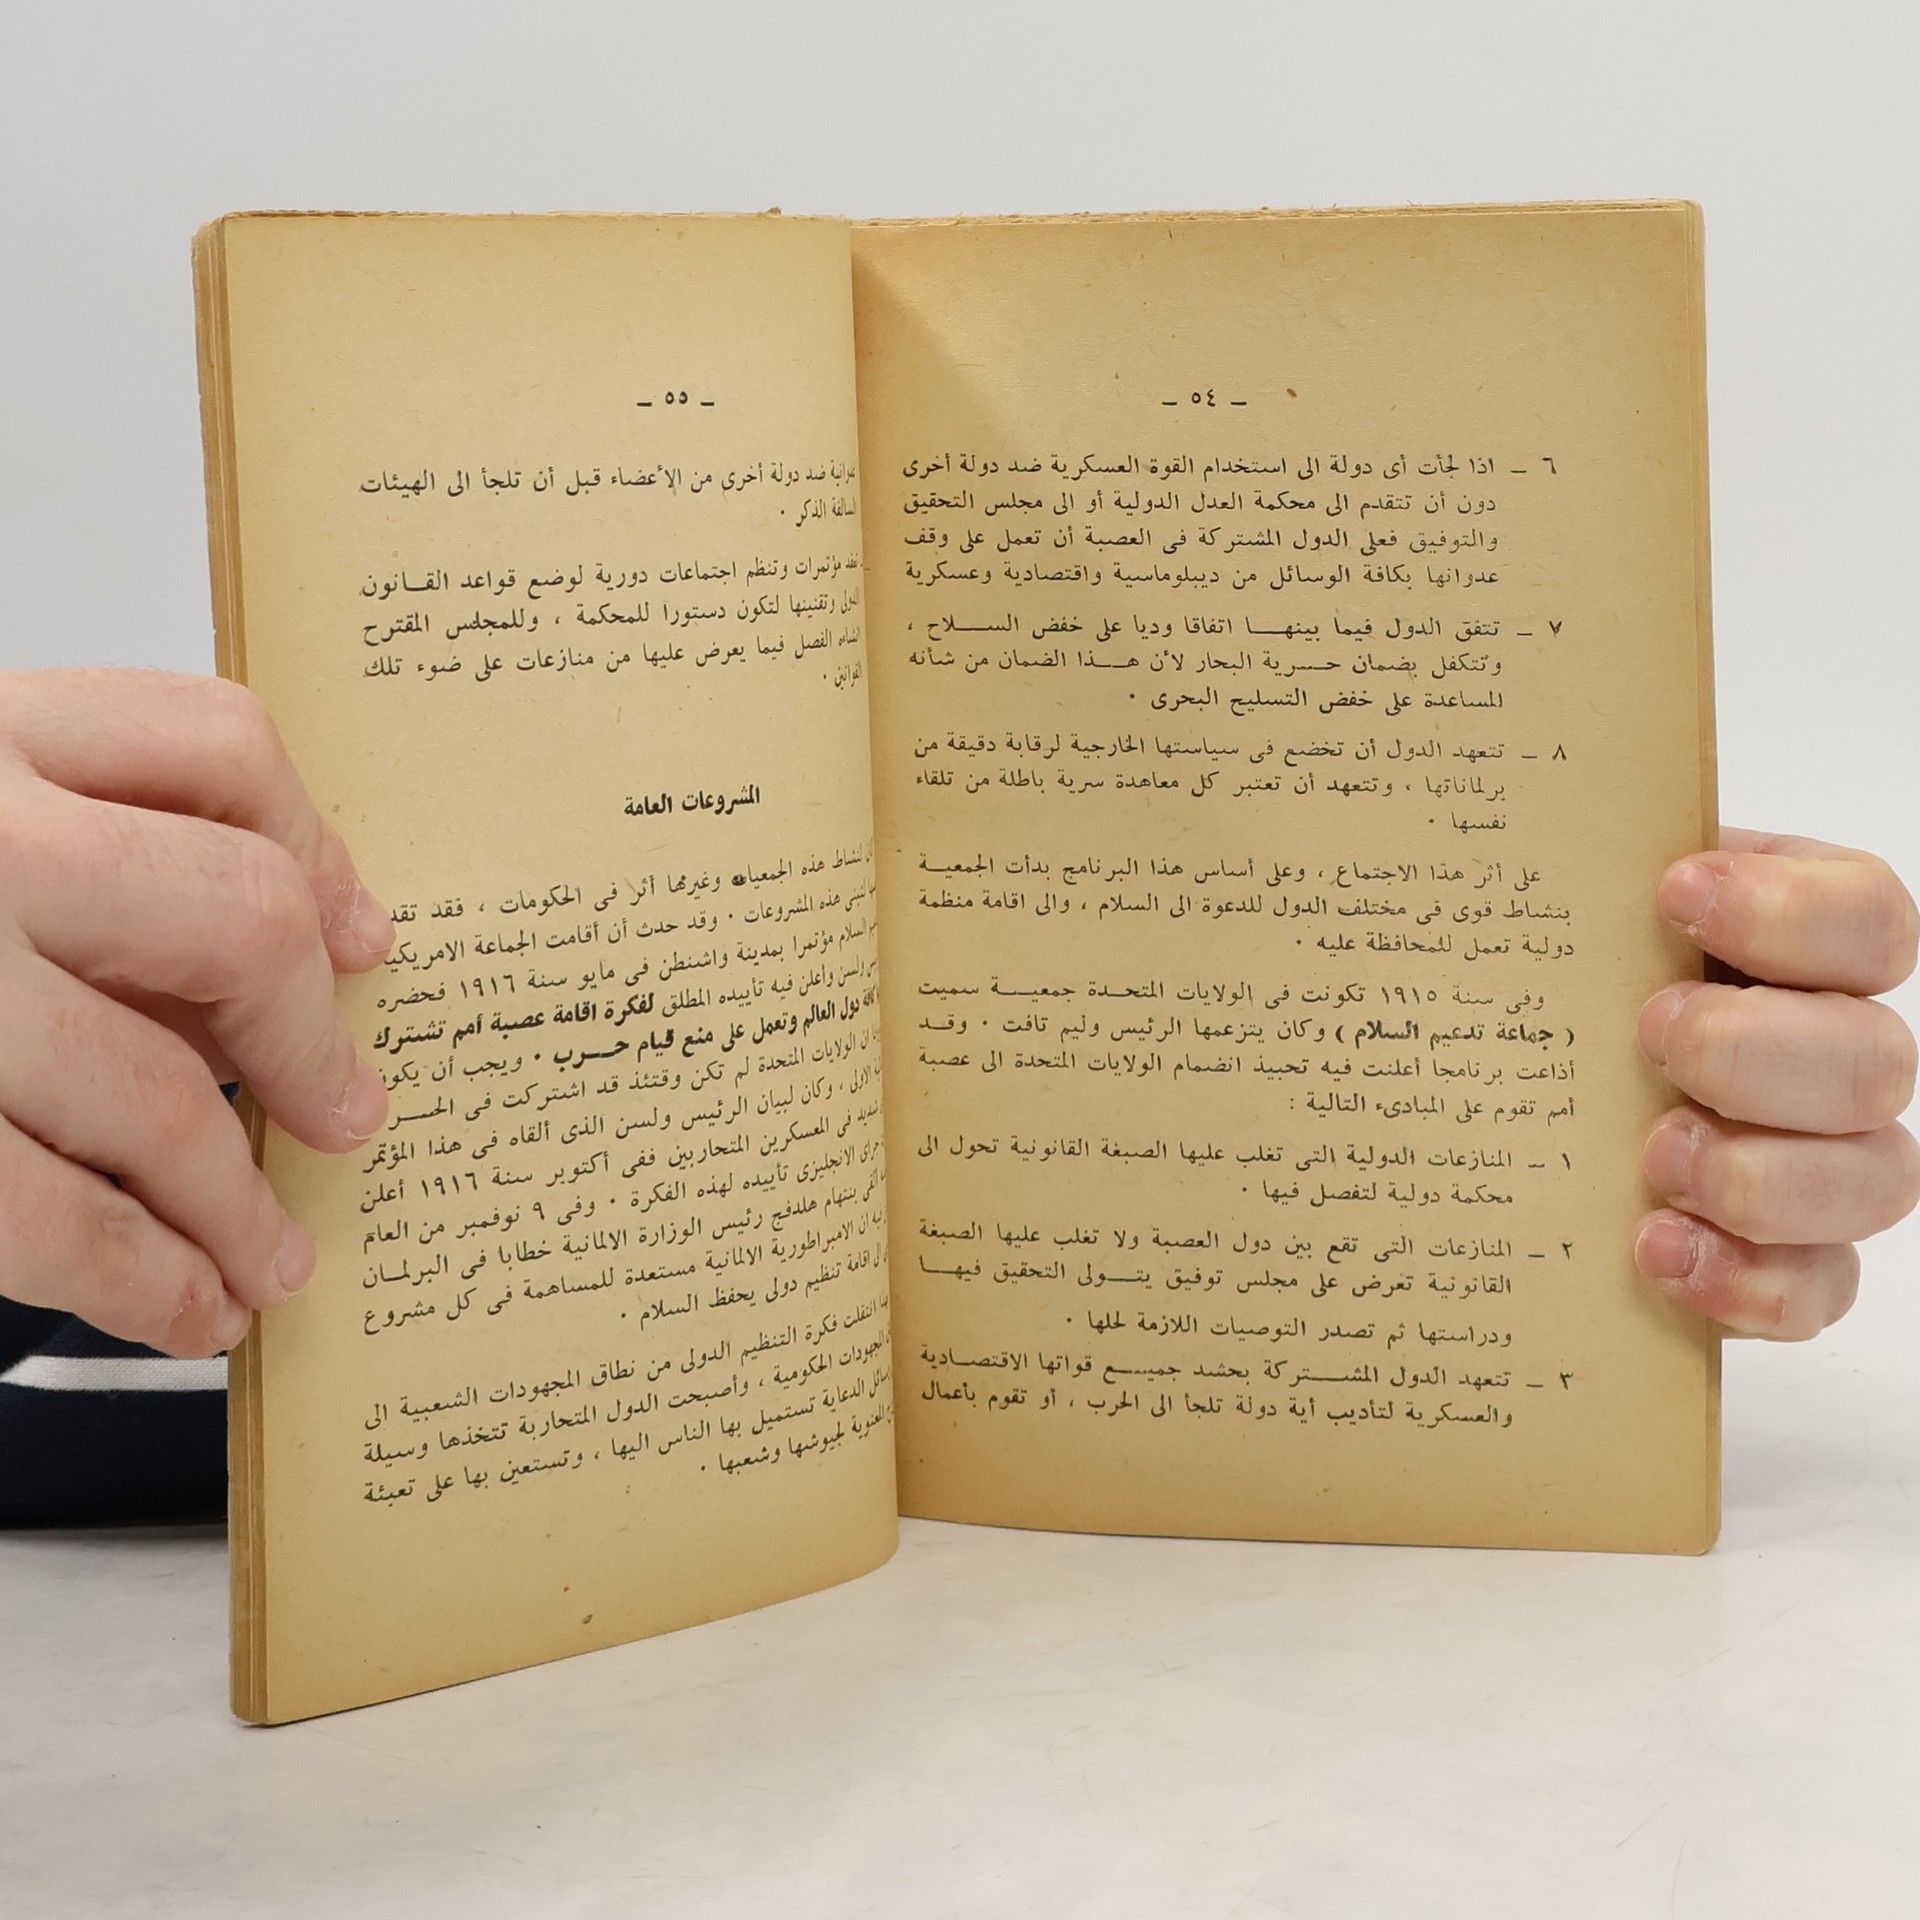 — ٥٤ —
٦ — اذا لجأت أى دولة الى استخدام القوة العسكرية ضد دولة أخرى
دون أن تتقدم الى محكمة العدل الدولية أو الى مجلس التحقيق
والتوفيق فعلى الدول المشتركة فى العصبة أن تعمل على وقف
عدوانها بكافة الوسائل من ديبلوماسية واقتصادية وعسكرية
٧ — تتفق الدول فيما بينهـــا اتفاقا وديا على خفض الســـلاح ،
وتتكفل بضمان حـــرية البحار لأن هـــذا الضمان من شأنه
المساعدة على خفض التسليح البحرى ٠
٨ — تتعهد الدول أن تخضع فى سياستها الخارجية لرقابة دقيقة من
برلماناتها ، وتتعهد أن تعتبر كل معاهدة سرية باطلة من تلقاء
نفسها ٠
على أثر هذا الاجتماع ، وعلى أساس هذا البرنامج بدأت الجمعيـــة
بنشاط قوى فى مختلف الدول للدعوة الى السلام ، والى اقامة منظمة
دولية تعمل للمحافظة عليه ٠
وفى سنة ١٩١٥ تكونت فى الولايات المتحـــدة جمعيـــة سميت
( جماعة تدعيم السلام ) وكان يتزعمها الرئيس وليم تافت ٠ وقـــد
أذاعت برنامجا أعلنت فيه تحبيذ انضمام الولايات المتحدة الى عصبة
أمم تقوم على المبادىء التالية :
١ — المنازعات الدولية التى تغلب عليها الصبغة القانونية تحول الى
محكمة دولية لتفصل فيها ٠
٢ — المنازعات التى تقع بين دول العصبة ولا تغلب عليها الصبغة
القانونية تعرض على مجلس توفيق يتـــولى التحقيق فيهـــا
ودراستها ثم تصدر التوصيات اللازمة لحلها ٠
٣ — تتعهد الدول المشـــتركة بحشد جميـــع قواتها الاقتصـادية
والعسكرية لتأديب أية دولة تلجأ الى الحرب ، أو تقوم بأعمال
— ٥٥ —
ضد دولة أخرى من الأعضاء قبل أن تلجأ الى الهيئات
السالفة الذكر ٠
مؤتمرات وتنظم اجتماعات دورية لوضع قواعد القـــانون
وتقنينها لتكون دستورا للمحكمة ، وللمجلس المقترح
الفصل فيما يعرض عليها من منازعات على ضوء تلك
القوانين ٠
المشروعات العامة
لنشاط هذه الجمعيات وغيرها أثر فى الحكومات ، فقد
هذه المشروعات ٠ وقد حدث أن أقامت الجماعة
السلام مؤتمرا بمدينة واشنطن فى مايو سنة ١٩١٦ فحضره
ولسن وأعلن فيه تأييده المطلق لفكرة اقامة عصبة أمم تشترك
كافة دول العالم وتعمل على منع قيام حـــرب ٠ ويجب أن يكون
ان الولايات المتحدة لم تكن وقتئذ قد اشتركت فى
الاولى ، وكان لبيان الرئيس ولسن الذى ألقاه فى هذا المؤتمر
شديد فى المعسكرين المتحاربين ففى أكتوبر سنة ١٩١٦ أعلن
جراى الانجليزى تأييده لهذه الفكرة ٠ وفى ٩ نوفمبر من العام
ألقى بنتهام هلدفج رئيس الوزارة الالمانية خطابا فى البرلمـــان
فيه ان الامبراطورية الالمانية مستعدة للمساهمة فى كل مشروع
الى اقامة تنظيم دولى يحفظ السلام ٠
انتقلت فكرة التنظيم الدولى من نطاق المجهودات الشعبية الى
المجهودات الحكومية ، وأصبحت الدول المتحاربة تتخذها وسيلة
الدعاية تستميل بها الناس اليها ، وتستعين بها على تعبئة
المعنوية لجيوشها وشعبها ٠